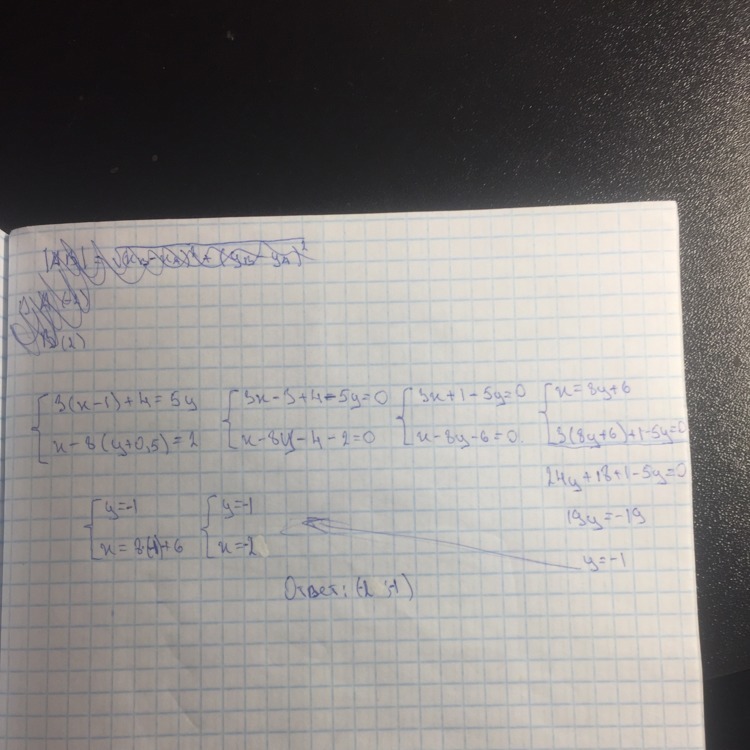 |AB| = √(x_B - x_A)² + (y_B - y_A)²
B(2)
{ 3(x-1)+4=5y
x-8(y+0,5)=2
{ 3x-3+4-5y=0
x-8y-4-2=0
{ 3x+1-5y=0
x-8y-6=0
{ x=8y+6
3(8y+6)+1-5y=0
24y+18+1-5y=0
19y=-19
y=-1
{ y=-1
x=8·(-1)+6
{ y=-1
x=-2
Ответ: (-2;-1)